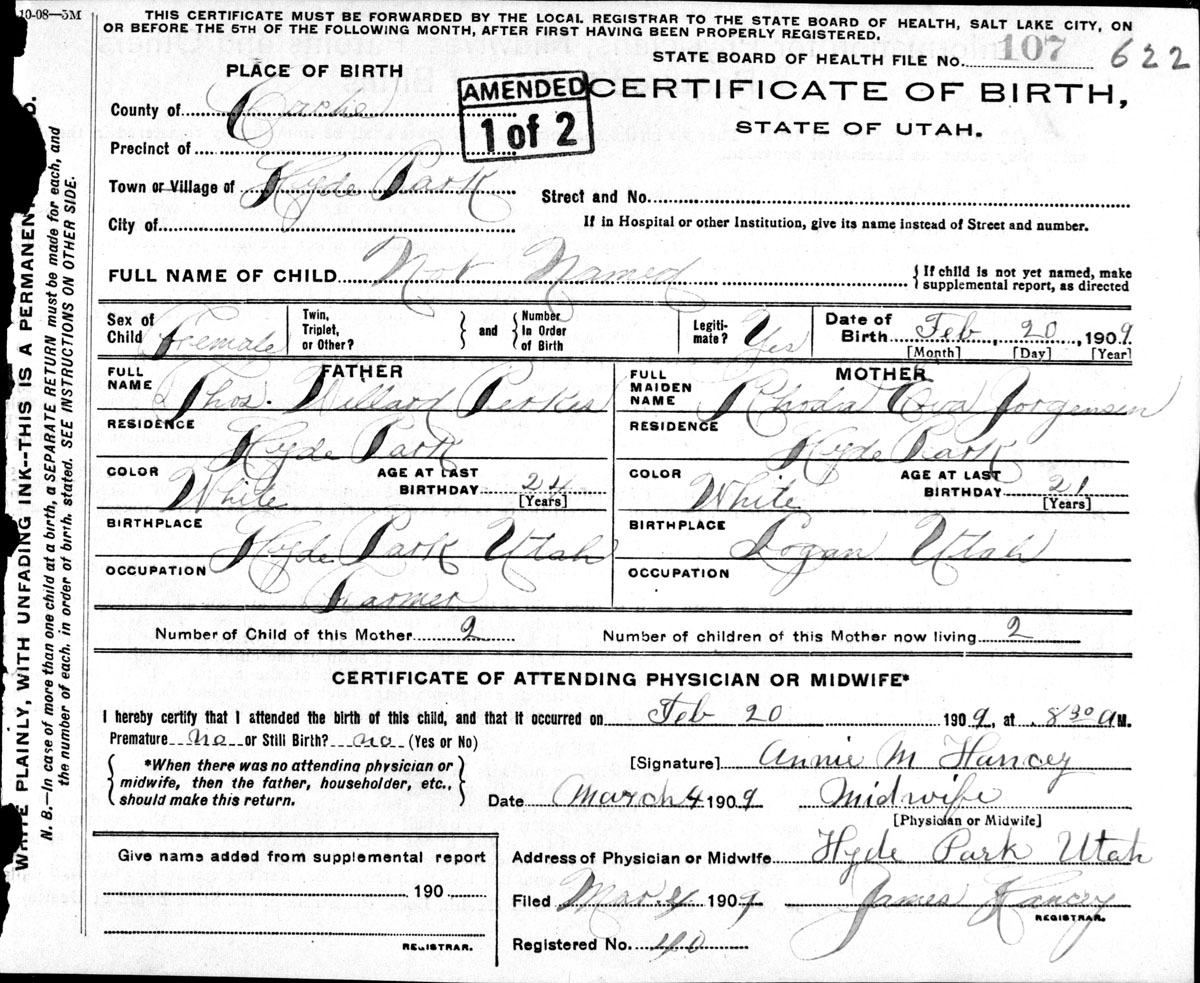 10-08—5M
THIS CERTIFICATE MUST BE FORWARDED BY THE LOCAL REGISTRAR TO THE STATE BOARD OF HEALTH, SALT LAKE CITY, ON
OR BEFORE THE 5TH OF THE FOLLOWING MONTH, AFTER FIRST HAVING BEEN PROPERLY REGISTERED.
STATE BOARD OF HEALTH FILE No. 107 622
PLACE OF BIRTH
AMENDED
1 of 2
CERTIFICATE OF BIRTH,
STATE OF UTAH.
County of Cache
Precinct of
Town or Village of Hyde Park
Street and No.
City of
If in Hospital or other Institution, give its name instead of Street and number.
FULL NAME OF CHILD Not Named
{ If child is not yet named, make
supplemental report, as directed
Sex of Child Female
Twin, Triplet, or Other? } and { Number In Order of Birth
Legiti-mate? Yes
Date of Birth Feb, 20, 1909
[Month] [Day] [Year]
FATHER
FULL NAME Thos. Willard Perkes
RESIDENCE Hyde Park
COLOR White AGE AT LAST BIRTHDAY 24 [Years]
BIRTHPLACE Hyde Park Utah
OCCUPATION Farmer
MOTHER
FULL MAIDEN NAME Rhoda Eva Jorgensen
RESIDENCE Hyde Park
COLOR White AGE AT LAST BIRTHDAY 21 [Years]
BIRTHPLACE Logan Utah
OCCUPATION
Number of Child of this Mother 2 Number of children of this Mother now living 2
CERTIFICATE OF ATTENDING PHYSICIAN OR MIDWIFE*
I hereby certify that I attended the birth of this child, and that it occurred on Feb 20 1909, at 8 30 A M.
Premature no or Still Birth? no (Yes or No)
{ *When there was no attending physician or
midwife, then the father, householder, etc.,
should make this return. }
[Signature] Annie M Hancey
Date March 4 1909 Midwife
[Physician or Midwife]
Give name added from supplemental report
190
REGISTRAR.
Address of Physician or Midwife Hyde Park Utah
Filed Mar. 4 1909 James Hancey
REGISTRAR.
Registered No. 40
WRITE PLAINLY, WITH UNFADING INK--THIS IS A PERMANENT
N. B.—In case of more than one child at a birth, a SEPARATE RETURN must be made for each, and
the number of each, in order of birth, stated. SEE INSTRUCTIONS ON OTHER SIDE.